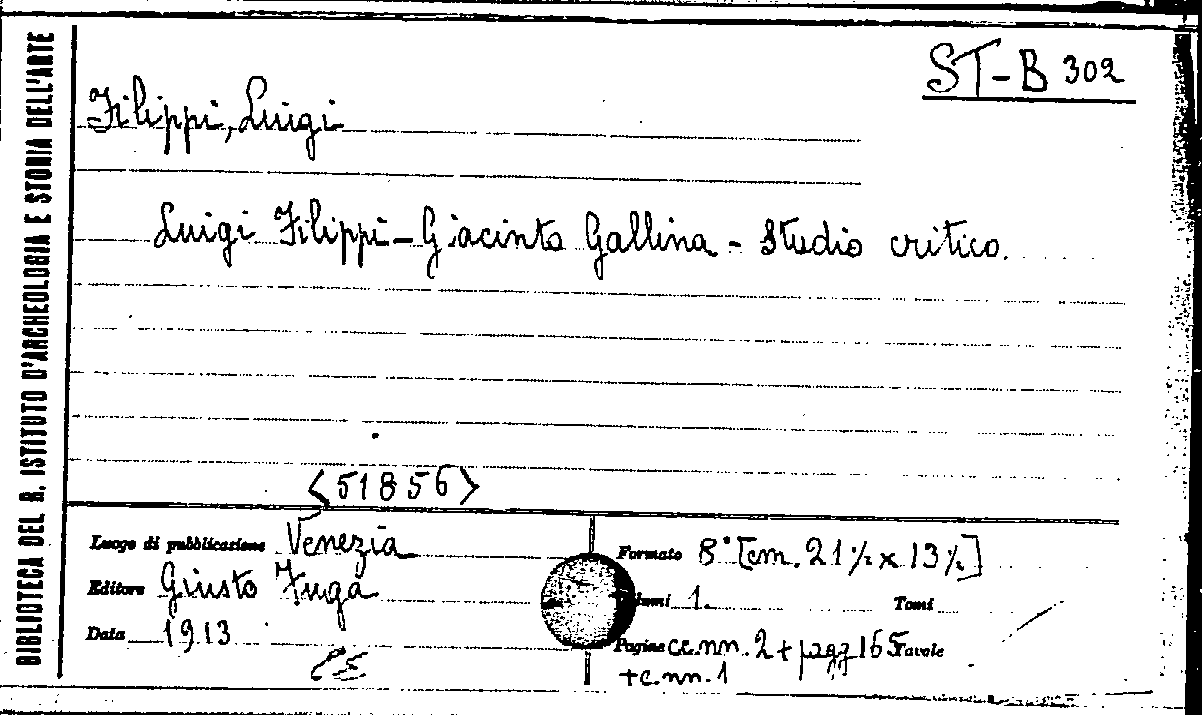 BIBLIOTECA DEL R. ISTITUTO D'ARCHEOLOGIA E STORIA DELL'ARTE
ST-B 302
Filippi, Luigi
Luigi Filippi - Giacinto Gallina - Studio critico.
<51856>
Luogo di pubblicazione Venezia
Editore Giusto Fuga
Data 1913
Formato 8° [cm. 21½ x 13½]
1.
Tomi
Pagine cc.nn. 2 + pagg 165 Tavole
+ c.nn. 1